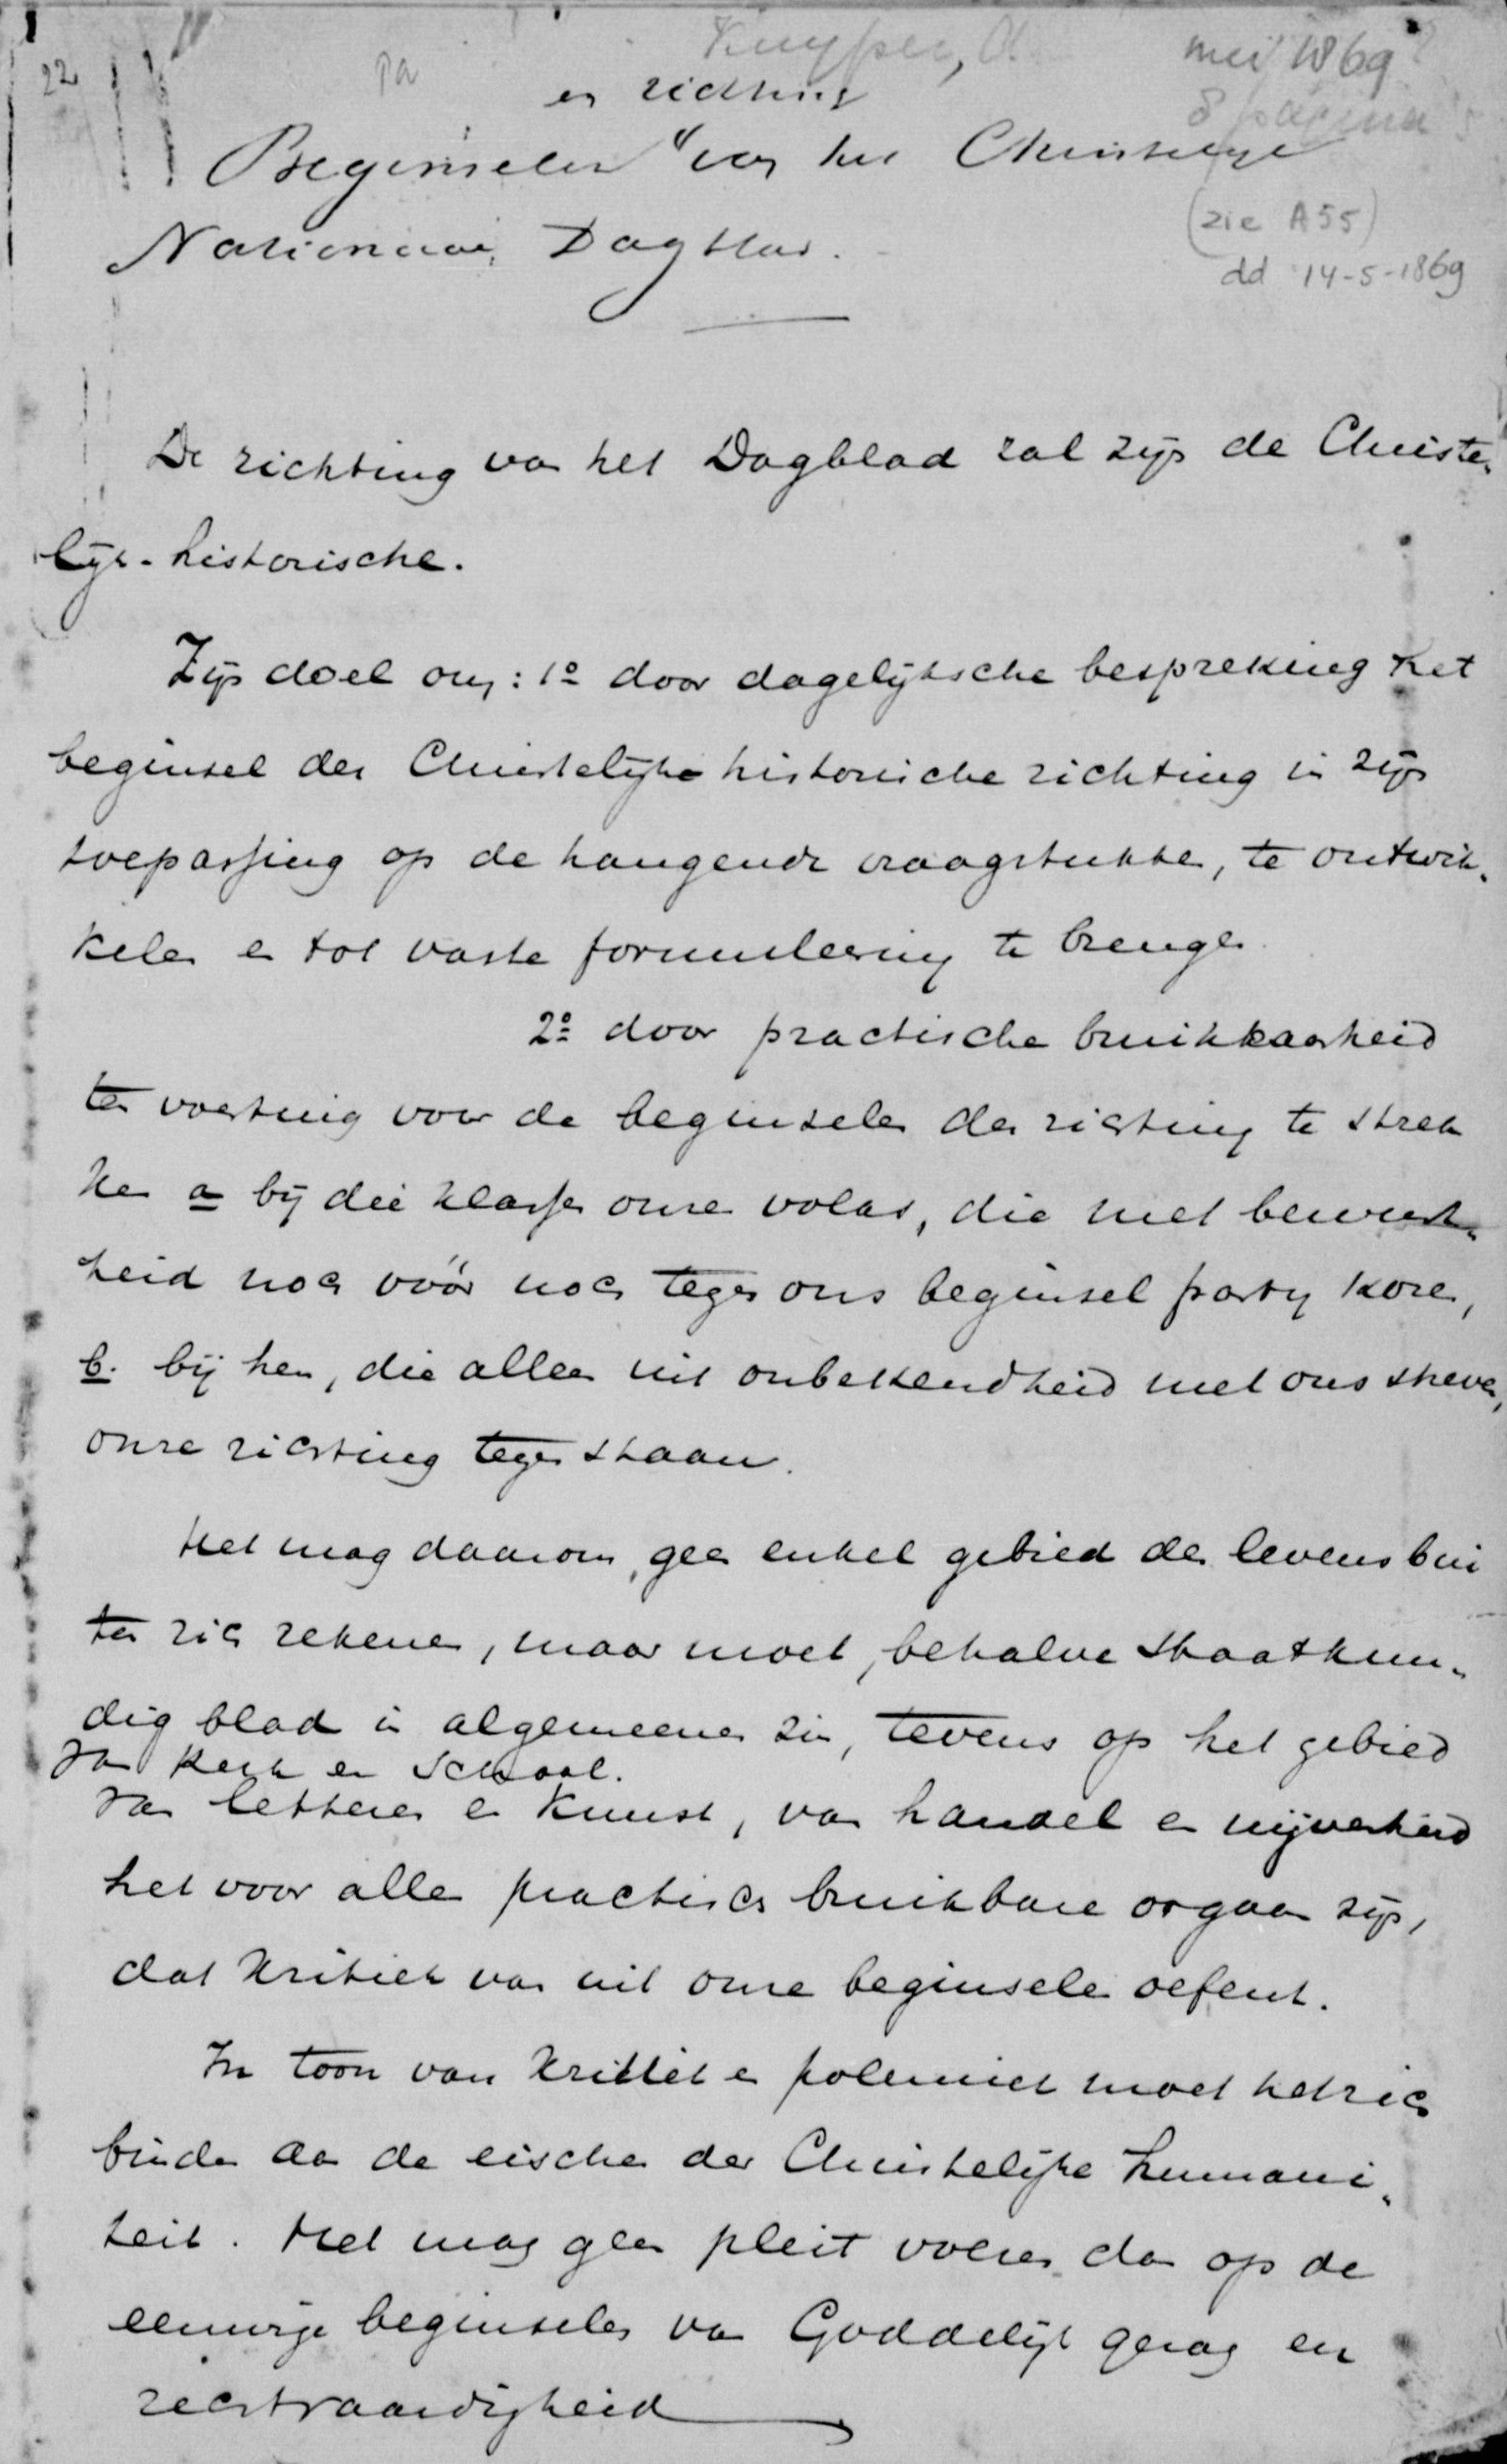 22
pa
Kuyper, A.
mei 1869?
8 pagina's
en richting
Beginselen van het Christelijk
Nationaal Dagblad.
(zie A55)
dd 14-5-1869
De richting van het Dagblad zal zijn de Christe-
lijk-historische.
Zijn doel om: 1o door dagelijksche bespreking het
beginsel der Christelijke historische richting in zijn
toepassing op de hangende vraagstukken, te ontwik-
kelen en tot vaste formuleering te brengen.
2o door practische bruikbaarheid
ter voertuig voor de beginselen der richting te strek
ken a bij die klasse onzes volks, die met bewust-
heid noch vóór noch tegen ons beginsel partij kozen,
b. bij hen, die alleen uit onbekendheid met ons streven,
onze richting tegenstaan.
Het mag daarom, geen enkel gebied des levens bui
ten zich rekenen, maar moet, behalve staatkun-
dig blad in algemeenen zin, tevens op het gebied
van kerk en School.
van letteren en kunst, van handel en nijverheid
het voor allen practisch bruikbare orgaan zijn,
dat kritiek van uit onze beginselen oefent.
In toon van kritiek en polemiek moet het zich
binden aan de eischen der Christelijke humani-
teit. Het mag geen pleit voeren dan op de
eeuwige beginselen van Goddelijk gezag en
rechtvaardigheid